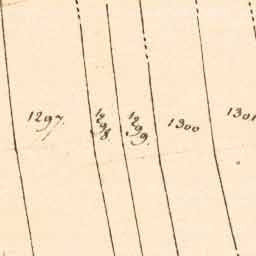 1297.
1298.
1299.
1300
1301